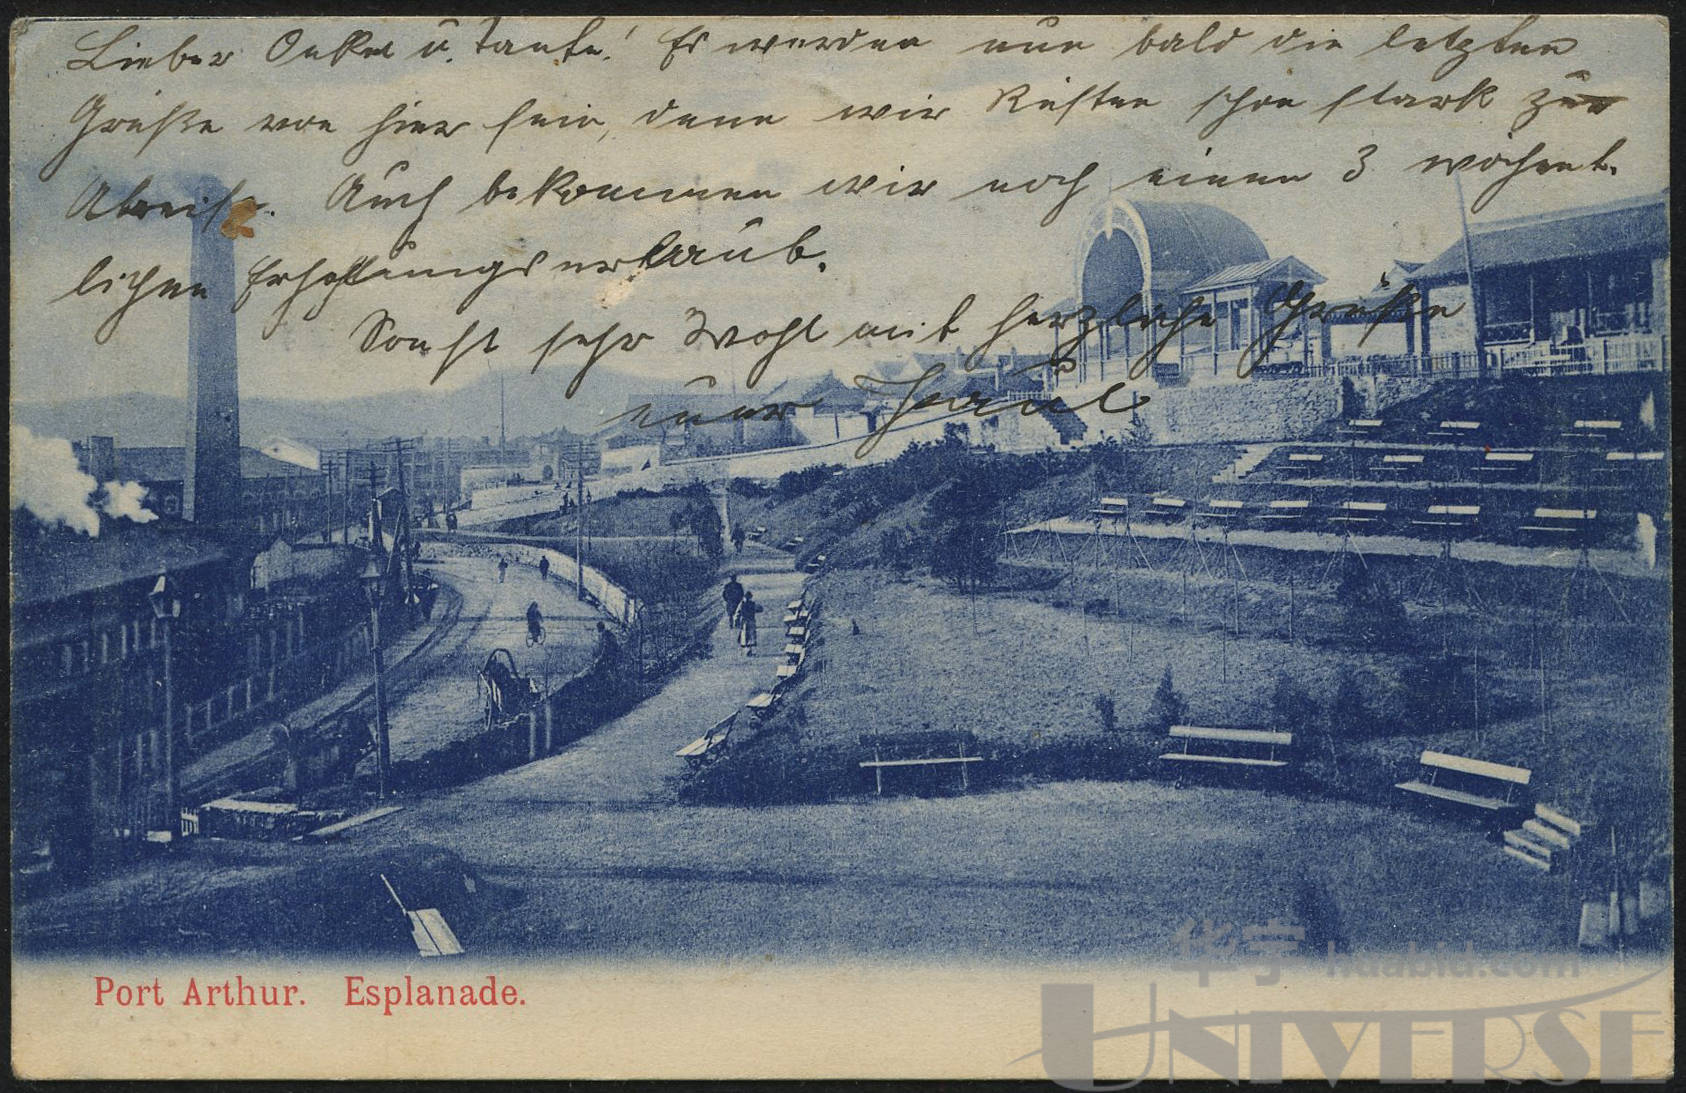 Lieber Onkel u. Tante! Es werden nun bald die letzten
Grüße von hier sein, denn wir rüsten schon stark zur
Abreise. Auch bekommen wir noch einen 3 wöchent-
lichen Erholungsurlaub.
Sonst sehr wohl mit herzliche Grüße
euer Paul
Port Arthur. Esplanade.
华宇 huabid.com
UNIVERSE